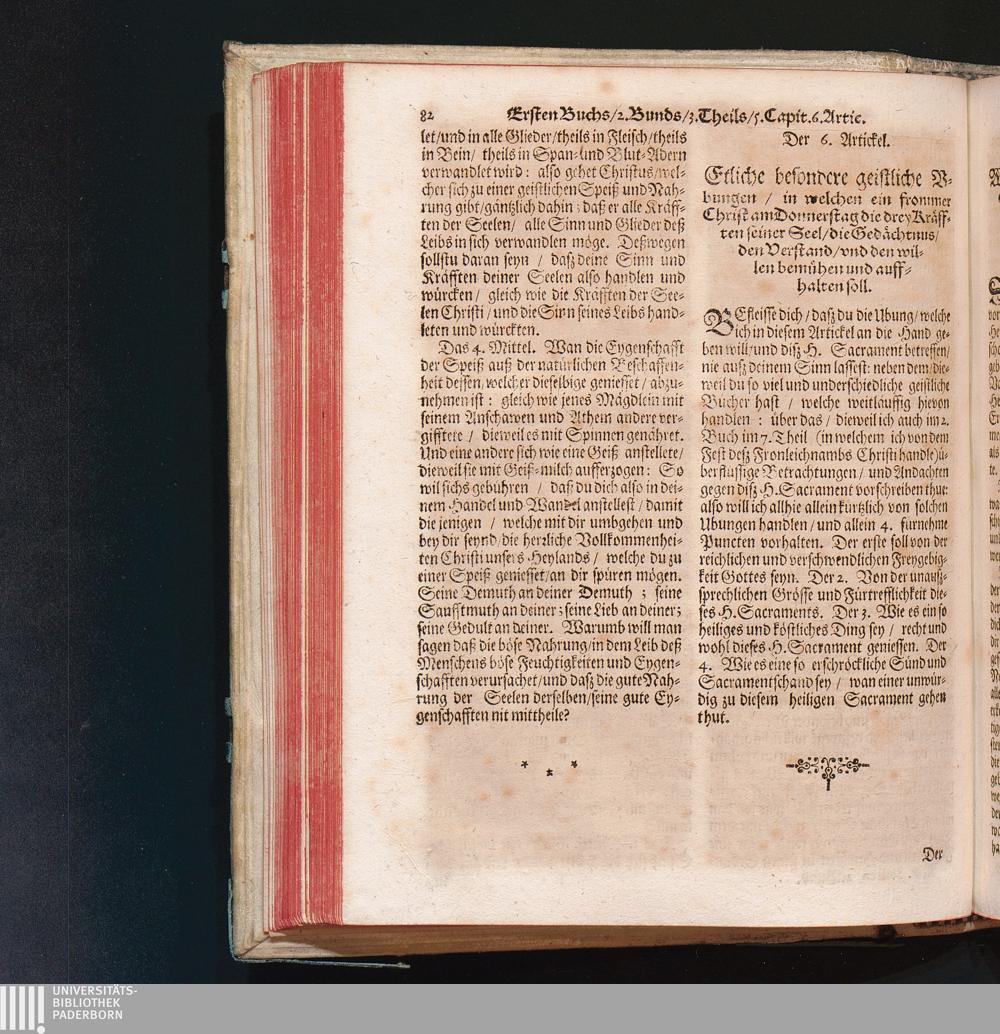 82 Ersten Buchs/2. Bunds/3. Theils/5. Capit. 6. Artic.
let/und in alle Glieder/theils in Fleisch/theils
in Bein/ theils in Span- und Blut-Adern
verwandlet wird: also gehet Christus/wel-
cher sich zu einer geistlichen Speiß und Nah-
rung gibt/gäntzlich dahin; daß er alle Kräff-
ten der Seelen/ alle Sinn und Glieder deß
Leibs in sich verwandlen möge. Deßwegen
sollstu daran seyn / daß deine Sinn und
Kräfften deiner Seelen also handlen und
würcken/ gleich wie die Kräfften der See-
len Christi / und die Sinn seines Leibs hand-
leten und würckten.
Das 4. Mittel. Wan die Eygenschafft
der Speiß auß der natürlichen Beschaffen-
heit dessen, welcher dieselbige geniesset / abzu-
nehmen ist: gleich wie jenes Mägdlein mit
seinem Anschawen und Athem andere ver-
gifftete / dieweil es mit Spinnen genähret.
Und eine andere sich wie eine Geiß anstellete/
dieweil sie mit Geiß-milch aufferzogen: So
wil sichs gebühren / daß du dich also in dei-
nem Handel und Wandel anstellest / damit
die jenigen / welche mit dir umbgehen und
bey dir seynd/die herzliche Vollkommenhei-
ten Christi unsers Heylands / welche du zu
einer Speiß geniesset/an dir spüren mögen.
Seine Demuth an deiner Demuth ; seine
Sanfftmuth an deiner; seine Lieb an deiner;
seine Gedult an deiner. Warumb will man
sagen daß die böse Nahrung/in dem Leib deß
Menschens böse Feuchtigkeiten und Eygen-
schafften verursachet/und daß die gute Nah-
rung der Seelen derselben/seine gute Ey-
genschafften nit mittheile?
* * *
Der 6. Artickel.
Etliche besondere geistliche V-
bungen / in welchen ein frommer
Christ am Donnerstag die drey Kräff-
ten seiner Seel/die Gedächtnus/
den Verstand/vnd den wil-
len bemühen und auff-
halten soll.
BEfleisse dich / daß du die Ubung/welche
ich in diesem Artickel an die Hand ge-
ben will/und diß H. Sacrament betreffen/
nie auß deinem Sinn lassest: neben dem/die-
weil du so viel und underschiedliche geistliche
Bücher hast / welche weitläuffig hievon
handlen : über das / dieweil ich auch im 2.
Buch im 7. Theil (in welchem ich von dem
Fest deß Fronleichnambs Christi handle) ü-
berflüssige Betrachtungen / und Andachten
gegen diß H. Sacrament vorschreiben thue:
also will ich allhie allein kürtzlich von solchen
Ubungen handlen / und allein 4. fürnehme
Puncten vorhalten. Der erste soll von der
reichlichen und verschwendlichen Freygebig-
keit Gottes seyn. Der 2. Von der unauß-
sprechlichen Grösse und Fürtrefflichkeit die-
ses H. Sacraments. Der 3. Wie es ein so
heiliges und köstliches Ding sey / recht und
wohl dieses H. Sacrament geniessen. Der
4. Wie es eine so erschröckliche Sünd und
Sacramentschand sey / wan einer unwür-
dig zu diesem heiligen Sacrament gehen
thut.
Der
UNIVERSITÄTS-
BIBLIOTHEK
PADERBORN